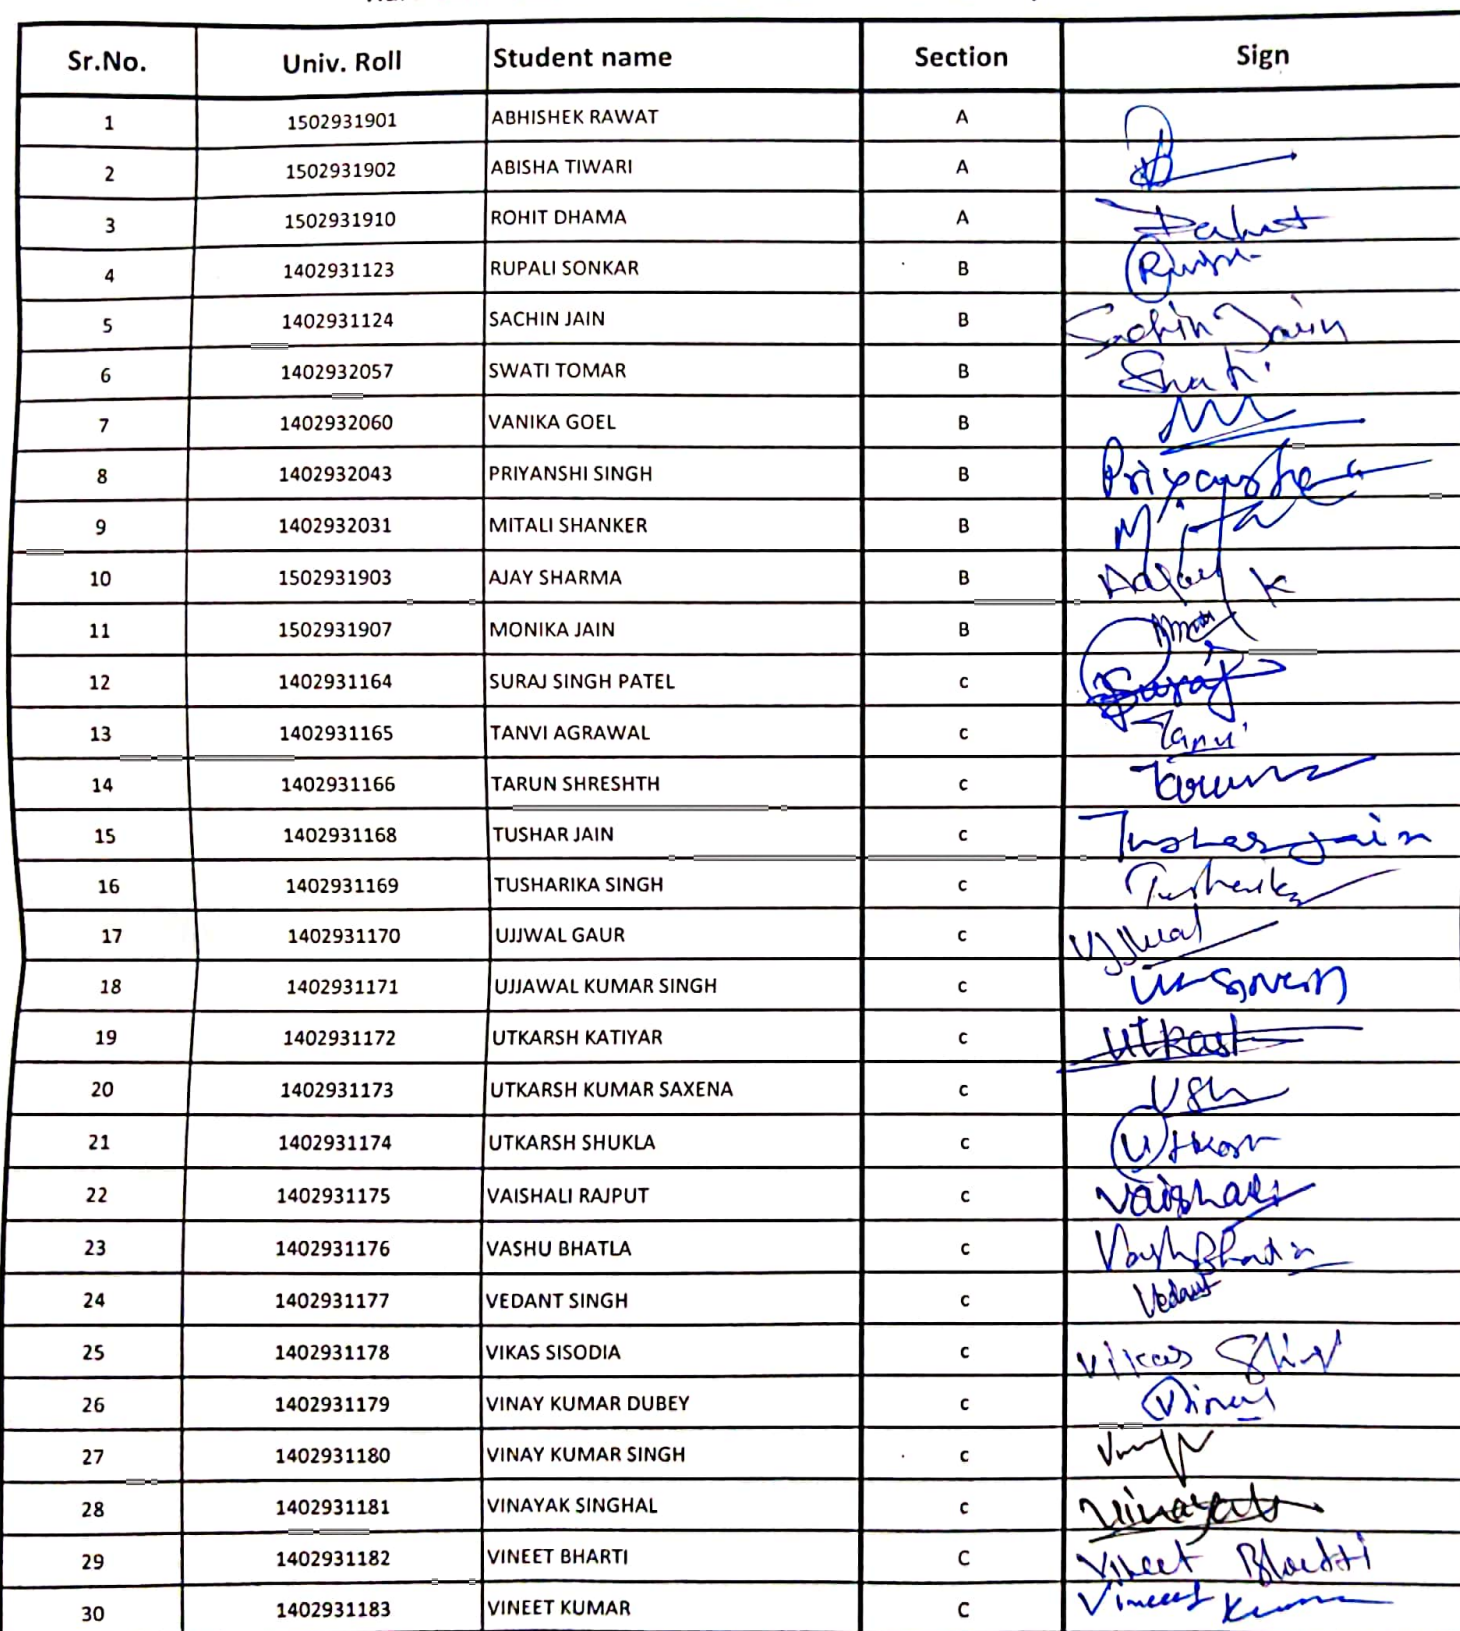 Sr.No. Univ. Roll Student name Section Sign
1 1502931901 ABHISHEK RAWAT A
2 1502931902 ABISHA TIWARI A
3 1502931910 ROHIT DHAMA A
4 1402931123 RUPALI SONKAR B
5 1402931124 SACHIN JAIN B Sachin Jain
6 1402932057 SWATI TOMAR B
7 1402932060 VANIKA GOEL B
8 1402932043 PRIYANSHI SINGH B
9 1402932031 MITALI SHANKER B
10 1502931903 AJAY SHARMA B
11 1502931907 MONIKA JAIN B
12 1402931164 SURAJ SINGH PATEL C Suraj
13 1402931165 TANVI AGRAWAL C Tanvi
14 1402931166 TARUN SHRESHTH C
15 1402931168 TUSHAR JAIN C Tushar Jain
16 1402931169 TUSHARIKA SINGH C
17 1402931170 UJJWAL GAUR C Ujjwal
18 1402931171 UJJAWAL KUMAR SINGH C
19 1402931172 UTKARSH KATIYAR C
20 1402931173 UTKARSH KUMAR SAXENA C
21 1402931174 UTKARSH SHUKLA C
22 1402931175 VAISHALI RAJPUT C Vaishali
23 1402931176 VASHU BHATLA C
24 1402931177 VEDANT SINGH C Vedant
25 1402931178 VIKAS SISODIA C Vikas
26 1402931179 VINAY KUMAR DUBEY C Vinay
27 1402931180 VINAY KUMAR SINGH C
28 1402931181 VINAYAK SINGHAL C Vinayak
29 1402931182 VINEET BHARTI C Vineet Bharti
30 1402931183 VINEET KUMAR C Vineet Kumar